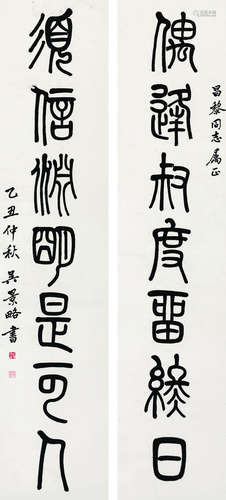 昌黎同志屬正
偶逢叔度留終日
須信淵明是可人
乙丑仲秋吳景略書